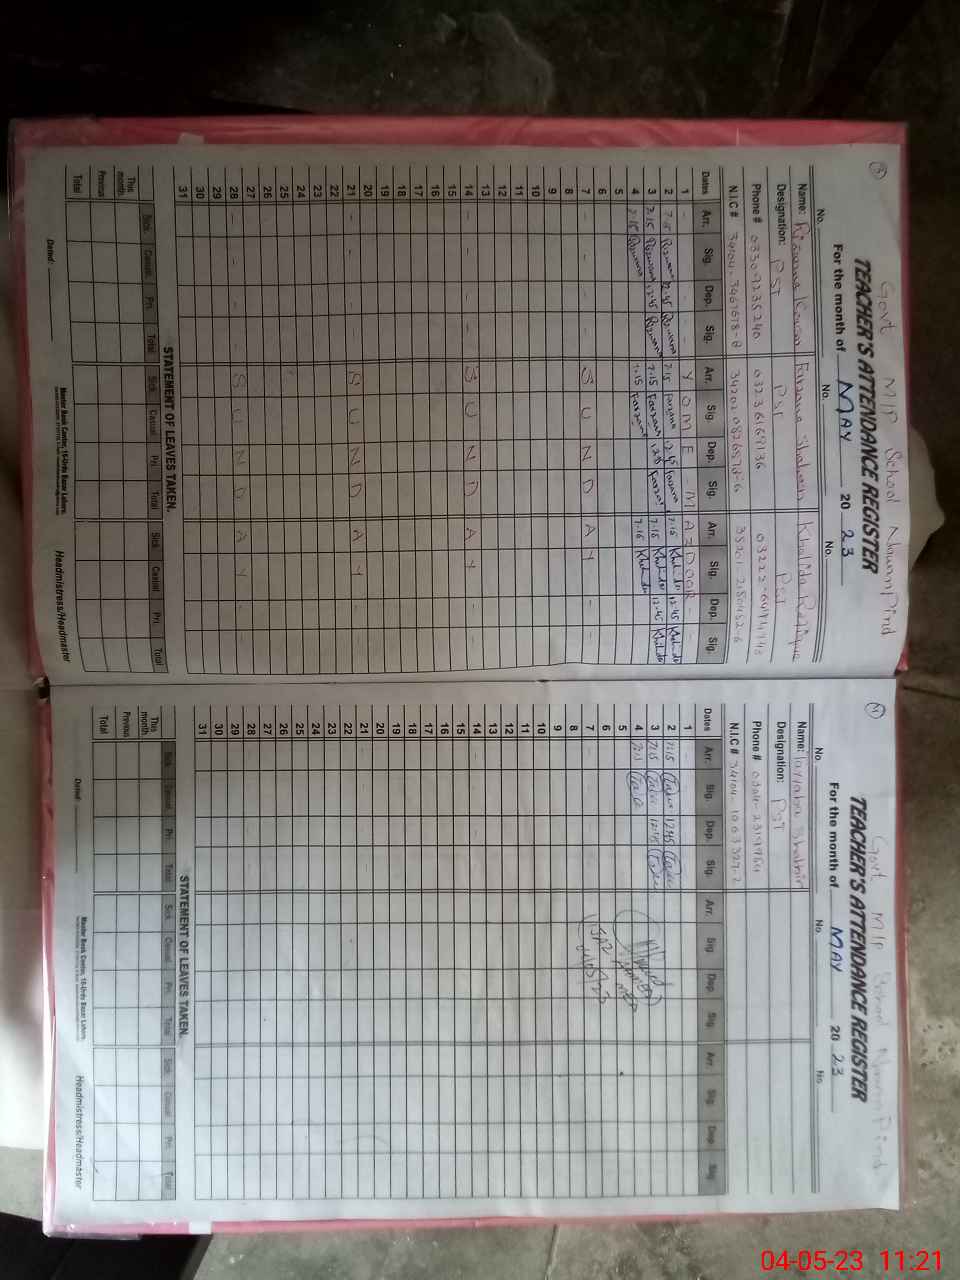 3
Govt M/P School Nawan Pind
TEACHER'S ATTENDANCE REGISTER
For the month of MAY 20 23
No. No. No.
Name: Rizwana Kausar Farzana Shaheen Khalida Rafique
Designation: PST PST PST
Phone #
N.I.C #
Dates Arr. Sig. Dep. Sig. Arr. Sig. Dep. Sig. Arr. Sig. Dep. Sig.
1 - - - - Y O M E M A Z D O O R -
2 7:15 Rizwana 12:45 Rizwana 7:15 Farzana 12:45 Farzana 7:15 Khalida 12:45 Khalida
3 7:15 Rizwana 12:45 Rizwana 7:15 Farzana Farzana 7:15 Khalida 12:45 Khalida
4 7:15 Rizwana 7:15 Farzana 7:15 Khalida
5
6
7 - - - - S U N D A Y - -
8
9
10
11
12
13
14 - - - - S U N D A Y - -
15
16
17
18
19
20
21 - - - - S U N D A Y - -
22
23
24
25
26
27
28 - - - - S U N D A Y -
29
30
31
STATEMENT OF LEAVES TAKEN.
Sick Casual Pri. Total Sick Casual Pri. Total Sick Casual Pri. Total
This month.
Previous
Total
Dated:
Master Book Center, 16-Urdu Bazar Lahore.
Headmistress/Headmaster
4
Govt M/P School Nawan Pind
TEACHER'S ATTENDANCE REGISTER
For the month of MAY 20 23
No. No. No.
Name: Shabbir
Designation: PST
Phone #
N.I.C #
Dates Arr. Sig. Dep. Sig. Arr. Sig. Dep. Sig. Arr. Sig. Dep. Sig.
1
2 7:15 12:45
3 7:15 12:45
4 7:15
5
6
7
8
9
10
11
12
13
14
15
16
17
18
19
20
21
22
23
24
25
26
27
28
29
30
31
STATEMENT OF LEAVES TAKEN.
Sick Casual Pri. Total Sick Casual Pri. Total Sick Casual Pri. Total
This month.
Previous
Total
Dated:
Master Book Center, 16-Urdu Bazar Lahore.
Headmistress/Headmaster
04-05-23 11:21